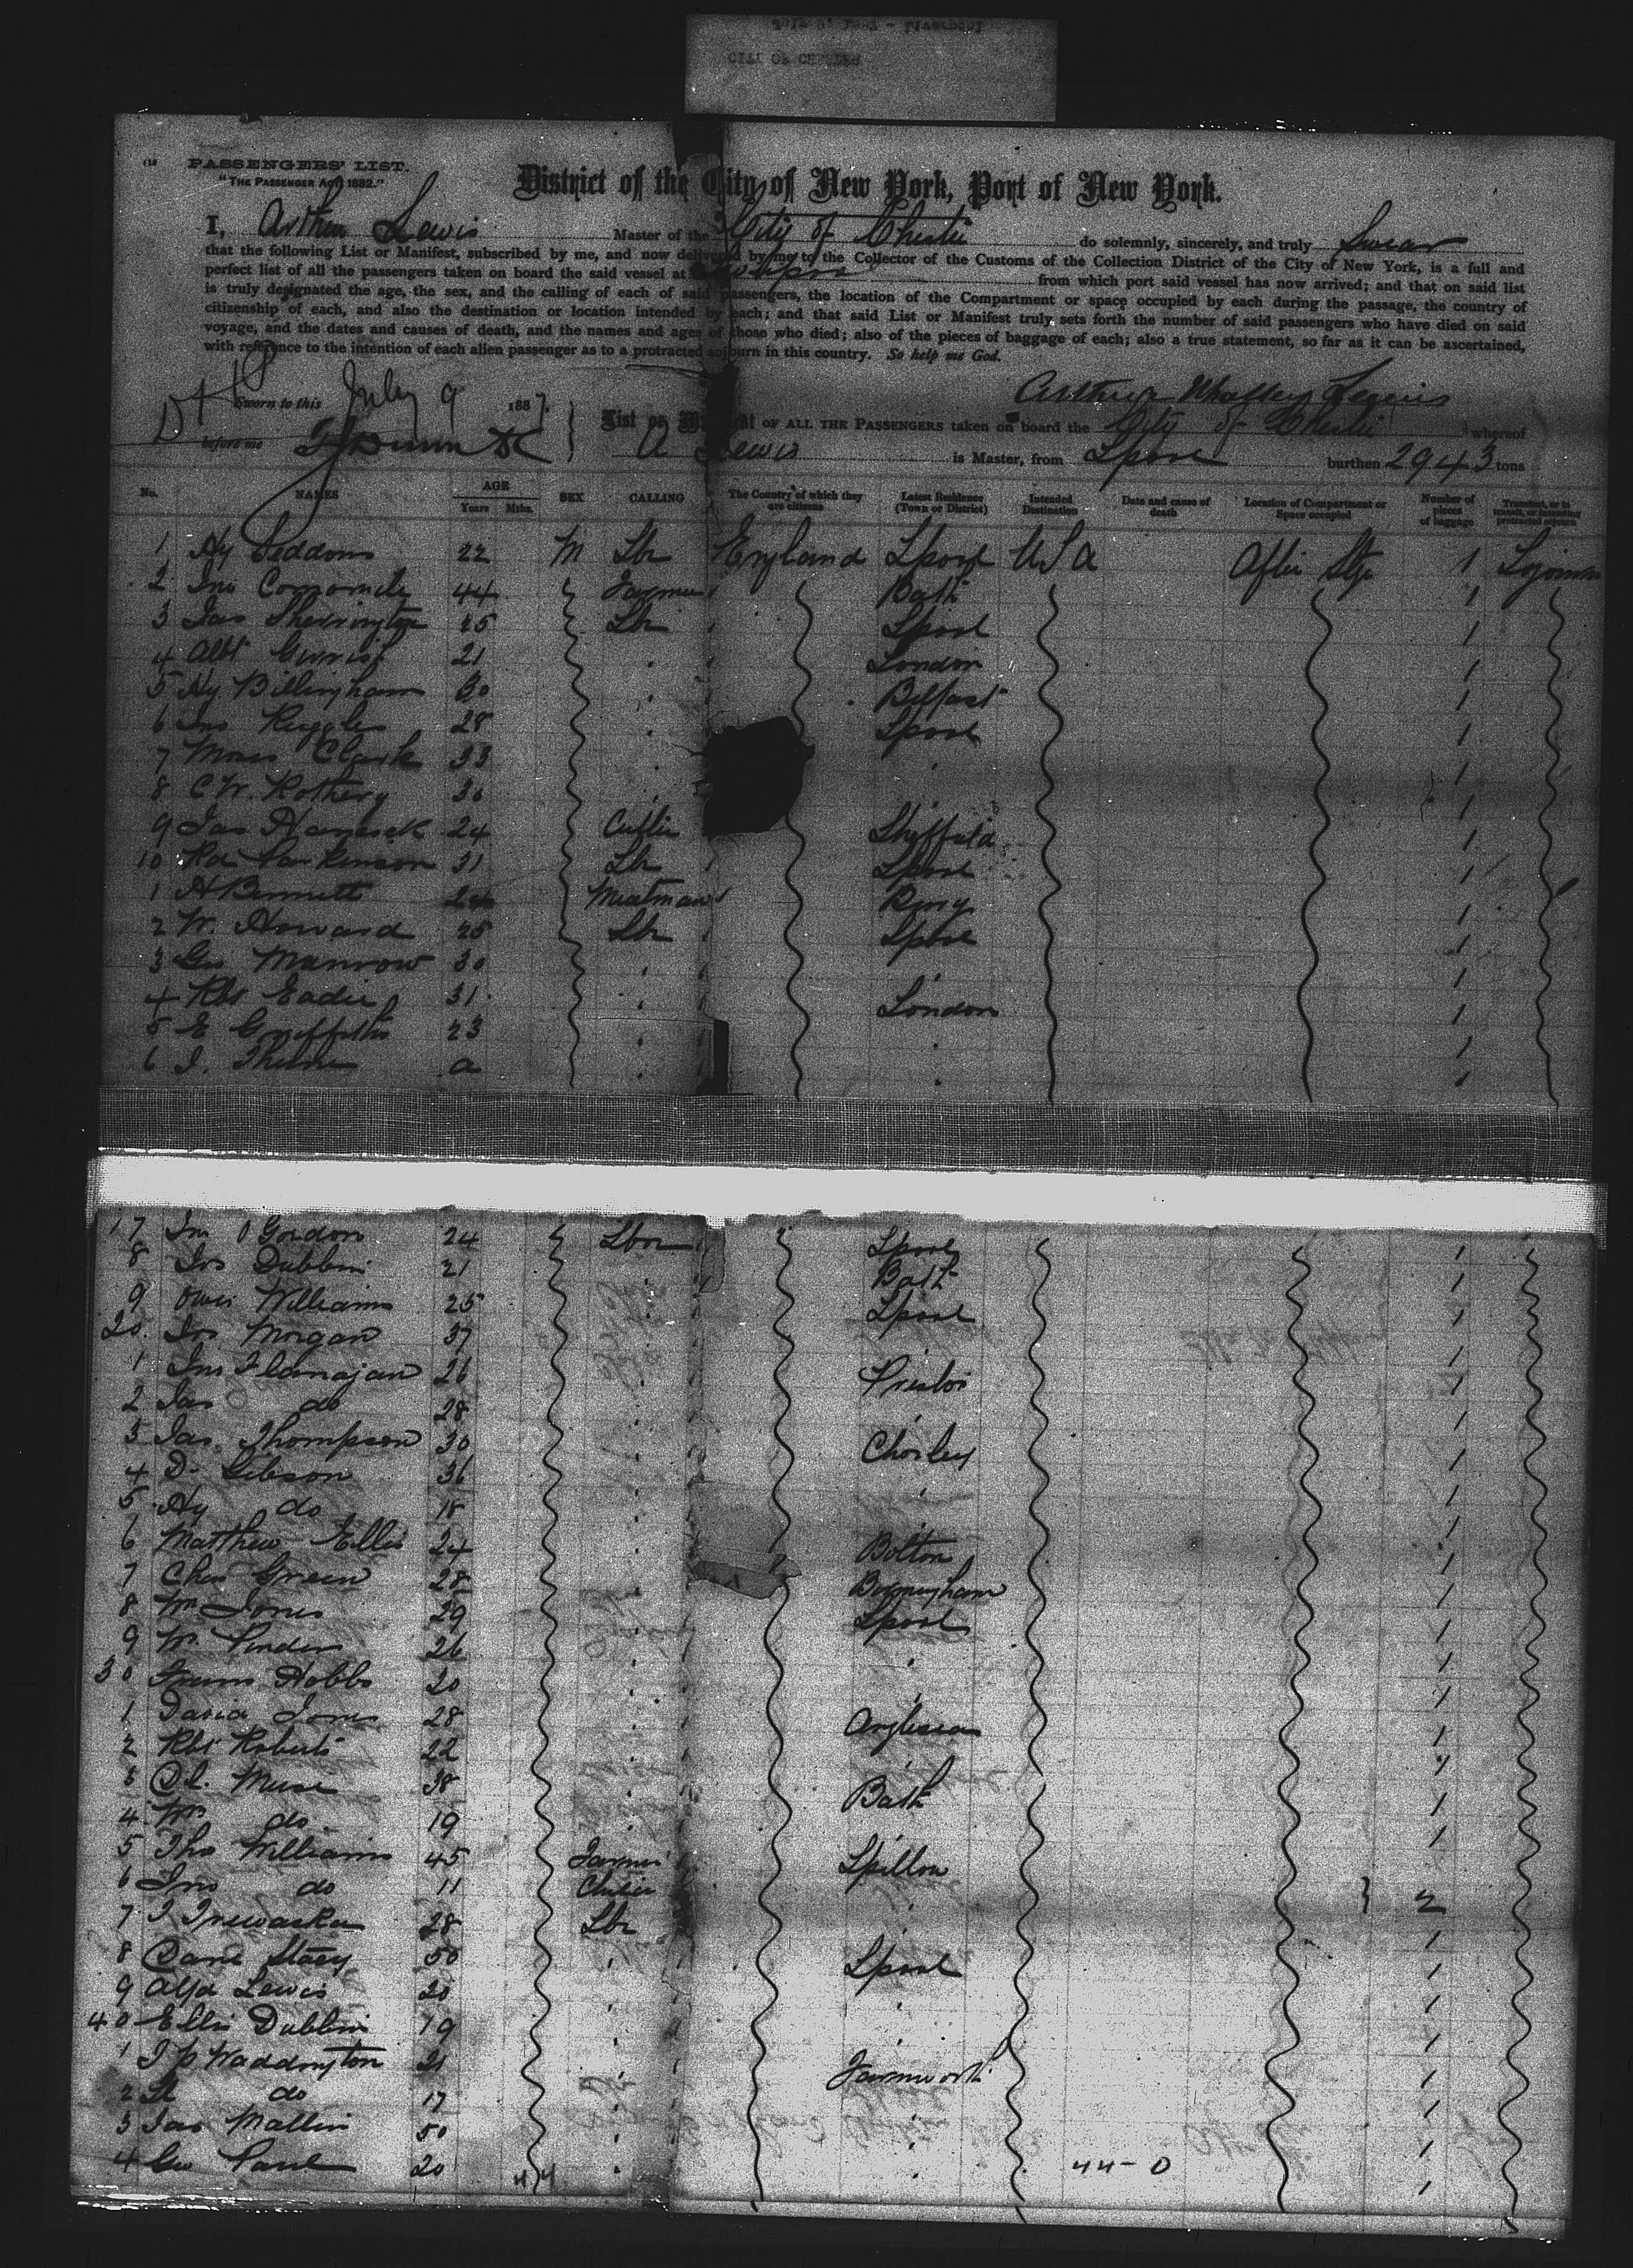 CITY OF CHESTER
PASSENGERS' LIST.
"THE PASSENGER ACT, 1882."
District of the City of New York, Port of New York.
I, Arthur Lewis Master of the City of Chester do solemnly, sincerely, and truly Swear
that the following List or Manifest, subscribed by me, and now delivered by me to the Collector of the Customs of the Collection District of the City of New York, is a full and
perfect list of all the passengers taken on board the said vessel at Liverpool from which port said vessel has now arrived; and that on said list
is truly designated the age, the sex, and the calling of each of said passengers, the location of the Compartment or space occupied by each during the passage, the country of
citizenship of each, and also the destination or location intended by each; and that said List or Manifest truly sets forth the number of said passengers who have died on said
voyage, and the dates and causes of death, and the names and ages of those who died; also of the pieces of baggage of each; also a true statement, so far as it can be ascertained,
with reference to the intention of each alien passenger as to a protracted sojourn in this country. So help me God.
Arthur Lewis
Sworn to this July 9 1887
List or Manifest OF ALL THE PASSENGERS taken on board the City of Chester whereof
before me
A Lewis is Master, from Lpool burthen 2943 tons
No. NAMES AGE Years Mths. SEX CALLING The Country of which they are citizens Latest Residence (Town or District) Intended Destination Date and cause of death Location of Compartment or Space occupied Number of pieces of baggage Transient, or in transit, or intending protracted sojourn
1 Hy Seddons 22 M Lbr England Lpool USA After Stge 1
2 Jno 44 Farmer Bath 1
3 Jas Sherrington 25 Lbr Lpool 1
4 Albt 21 London 1
5 Hy Billingham 30 Belfast 1
6 Jno 28 Lpool 1
7 Moses Clark 33 1
8 C W. Rothery 36 1
9 Jas 24 Cutler Sheffield 1
10 Parkinson 31 Lbr Lpool 1
1 H Bennett 24 Meatman 1
2 W. Howard 25 Lbr Lpool 1
3 Geo Manrow 30 1
4 Rbt Eadie 31 London 1
5 E Griffiths 23 1
6 J. 1
17 Jno Gordon 24 Lbr Lpool 1
8 Jos Dublin 21 Bath 1
9 Owen Williams 25 Lpool 1
20 Jos Morgan 37 1
1 Jno Flanajan 26 Preston 1
2 Jas do 28 1
3 Jas. Thompson 30 Chorley 1
4 D. Gibson 36 1
5 Hy do 18 1
6 Matthew Ellis 24 Bolton 1
7 Chas Green 28 Birmingham 1
8 Wm Jones 29 Lpool 1
9 W. Pinder 26 1
30 Hobbs 20 1
1 David Jones 28 Anglesea 1
2 Rbt Roberts 22 1
3 Muse 38 Bath 1
4 Wm do 19 1
5 Tho Williams 45 Farmer
6 Jno do 11 2
7 J 28 Lbr 1
8 Stacy 50 Lpool 1
9 Alfd Lewis 20 1
40 Ellis Dublin 19 1
1 J P Waddington 21 Farnworth 1
2 do 17 1
3 Jas Mallin 50 1
4 Geo Paul 20 1
44 44-0